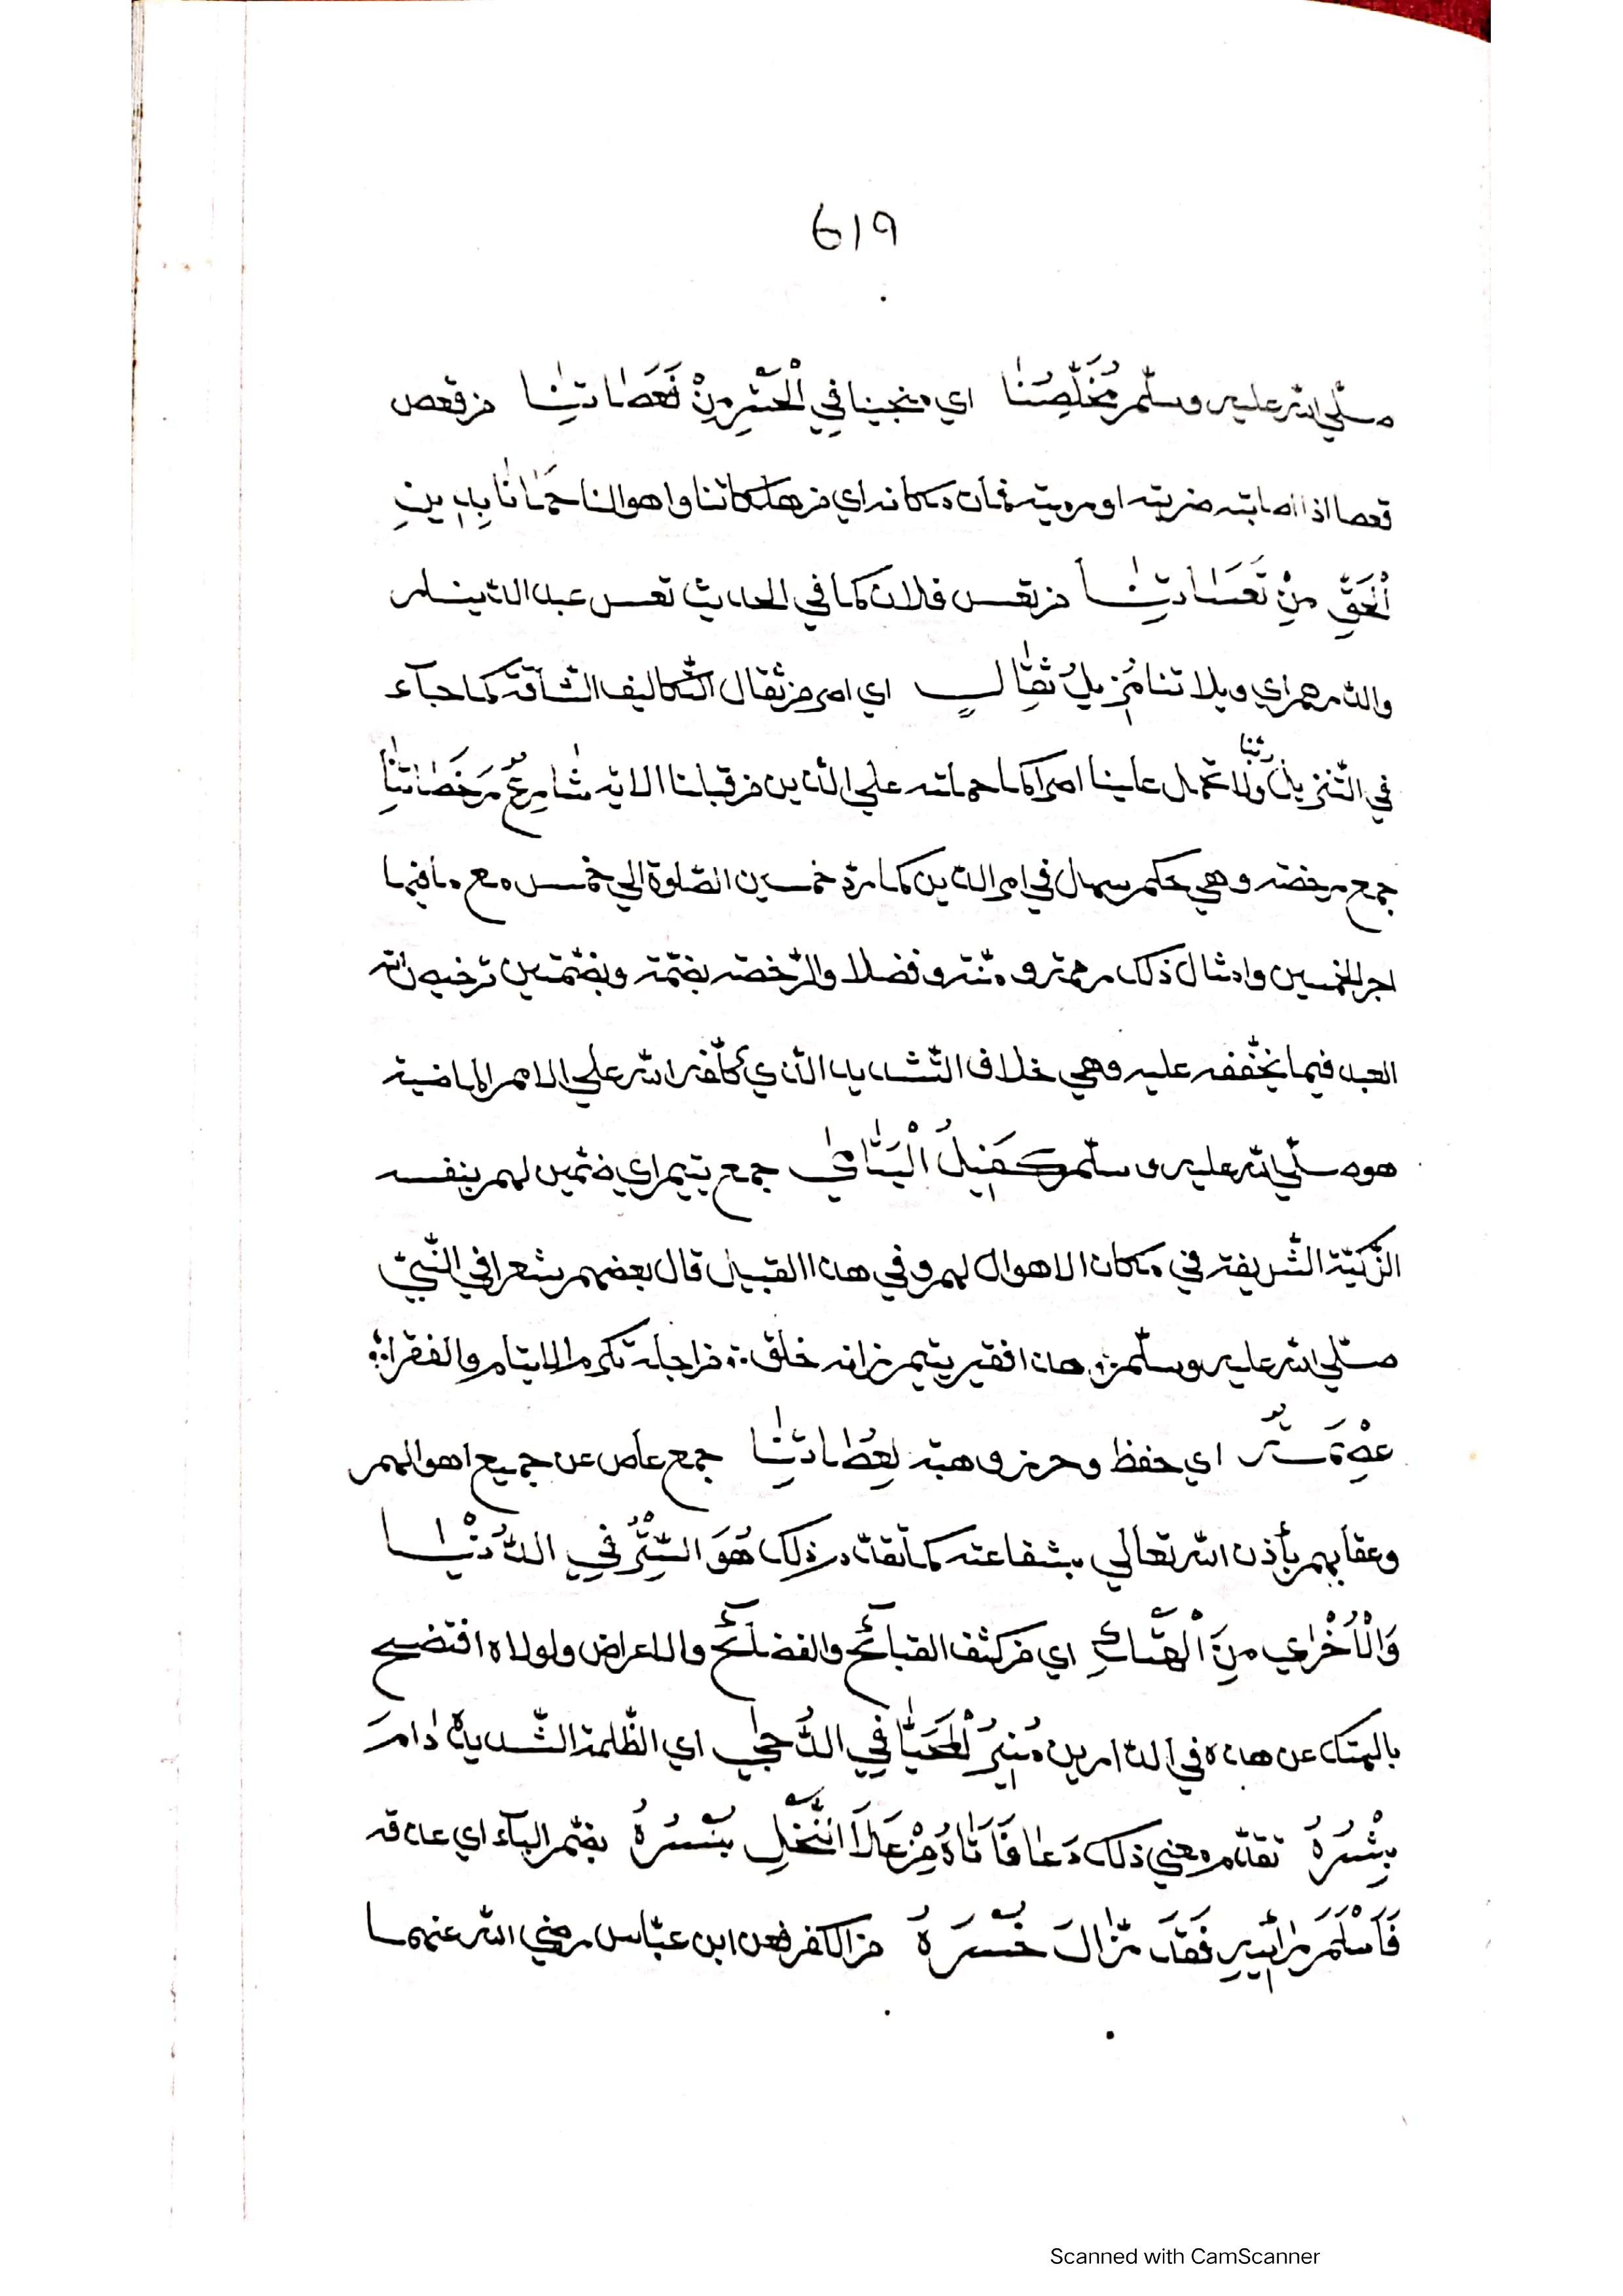 619
صلّي الله عليه وسلّم مُخَلِّصُنَا اي منجينا فِي الْحَشْرِ مِنْ قَعَصَاتِنَا من قعص
قعصا اذا اصابته ضربته او رميته فمات مكانه اي من هلكاتنا واهوالنا حَمَانَا بِدِينِ
الْحَقِّ مِنْ تَعَسَاتِنَا من تعس فلان كما في الحديث تعس عبد الدينار
والدرهم اي ويلاتنا مُزِيلُ ثِقَالٍ اي امر من ثقال التكاليف الشاقّة كما جآء
في التّنزيل رَبَّنَا وَلَا تحمل علينا اصرا كما حملته علي الّذين من قبلنا الاية شَارِعُ رُخَصَاتِنَا
جمع رخصة وهي حكم سهل في امر الدين كما ردّ خمسين الصّلوة الي خمس مع مافيها
اجر الخمسين وامثال ذلك رحمة ومنّة وفضلا والرّخصة بضمّة وبضمّتين ترخيص الله
العبد فيما يخفّفه عليه وهي خلاف التّشديد الّذي كلّفه الله علي الامم الماضية
هو صلّي الله عليه وسلّم كَفِيلُ الْيَتَامَي جمع يتيم اي ضمّين لهم بنفسه
الزّكيّة الشّريفة في مكان الاهوال لهم وفي هذا القبيل قال بعضهم شعرا في النّبيّ
صلّي الله عليه وسلّم هذا فقير يتيم زانه خلق من اجله تكرم الايتام والفقرا
عِصْمَةٌ اي حفظ وحرز وهبة لِعُصَاتِنَا جمع عاص عن جميع اهوالهم
وعقابهم بأذن الله تعالي بشفاعته كما تقدم ذلك هُوَ السِّتْرُ فِي الدُّنْيَا
وَالْاُخْرَي مِنَ الْهَتْكِ اي من كشف القبآئح والفضآئح والاعراض ولولاه افتضح
بالهتك عن هذه في الدارين مُنِيرُ الْمُحَيَّا فِي الدُّجَي اي الظّلمة الشّديدة دَامَ
بِشْرُهُ تقدّم معني ذلك دَعَا فَاَتَاهُ مِنْ عَلَا النَّخْلِ بُسْرُهُ بضمّ البآء اي عذقه
فَاَسْلَمَ رَائِيهِ فَقَدْ زَالَ خُسْرُهُ من الكفر فعن ابن عبّاس رضي الله عنهما
Scanned with CamScanner